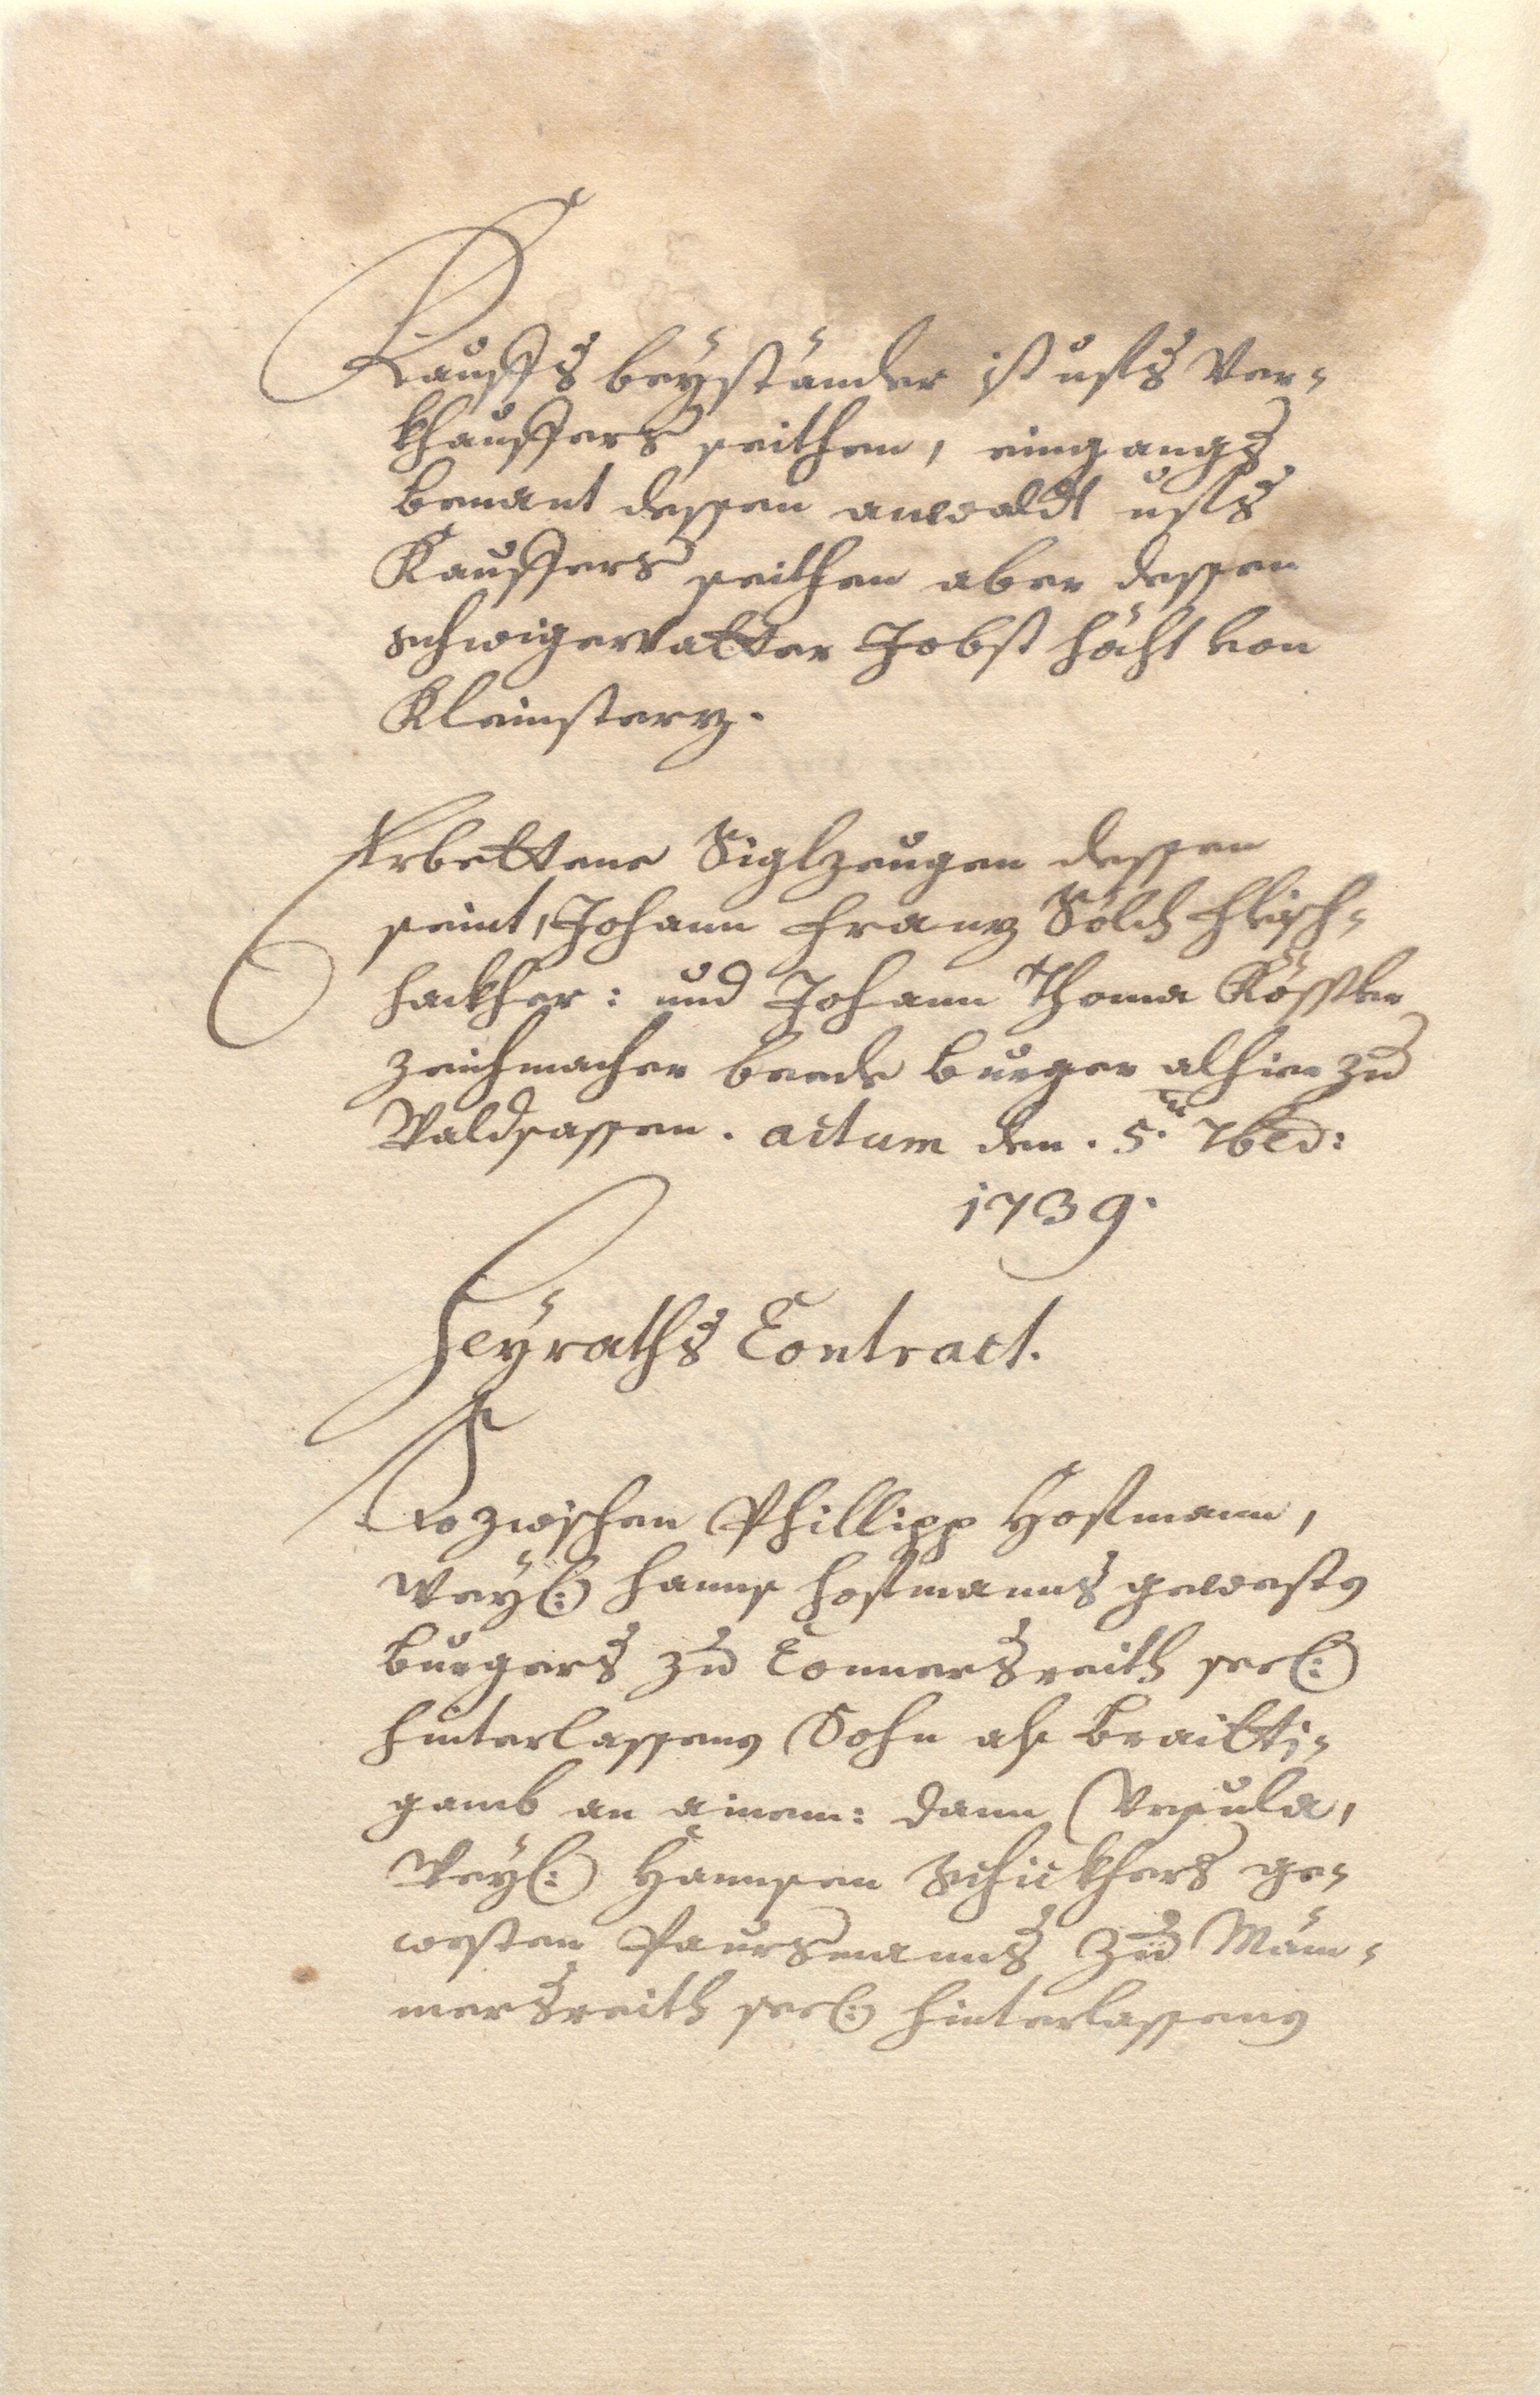 Kauffs beÿständer ist uffs Ver-
khauffers seithen, eingangs
benant dessen anwaldt uffs
Kauffers seithen aber dessen
schwigervatter Jobst Höcht von
Kleinsterz.
Erbettene Siglzeugen dessen
seint, Johann Franz Sölch Fleisch-
hackher: und Johann Thoma Rössler
Zeichmacher beede Burger alhier zu
Waldsassen. actum den. 5.ten 7bris:
1739.
Heÿraths Contract.
So zwischen Phillipp Hoffmann,
Weyl: Hanns Hoffmanns gewesten
Burgers zu Connersreith seel:
hinterlassenen Sohn als Braitti-
gamb an ainem: dann Ursula,
Weyl: Hannsen Schickhers ge-
westen Paursmanns zu Mäm-
mersreith seel: hinterlassenen